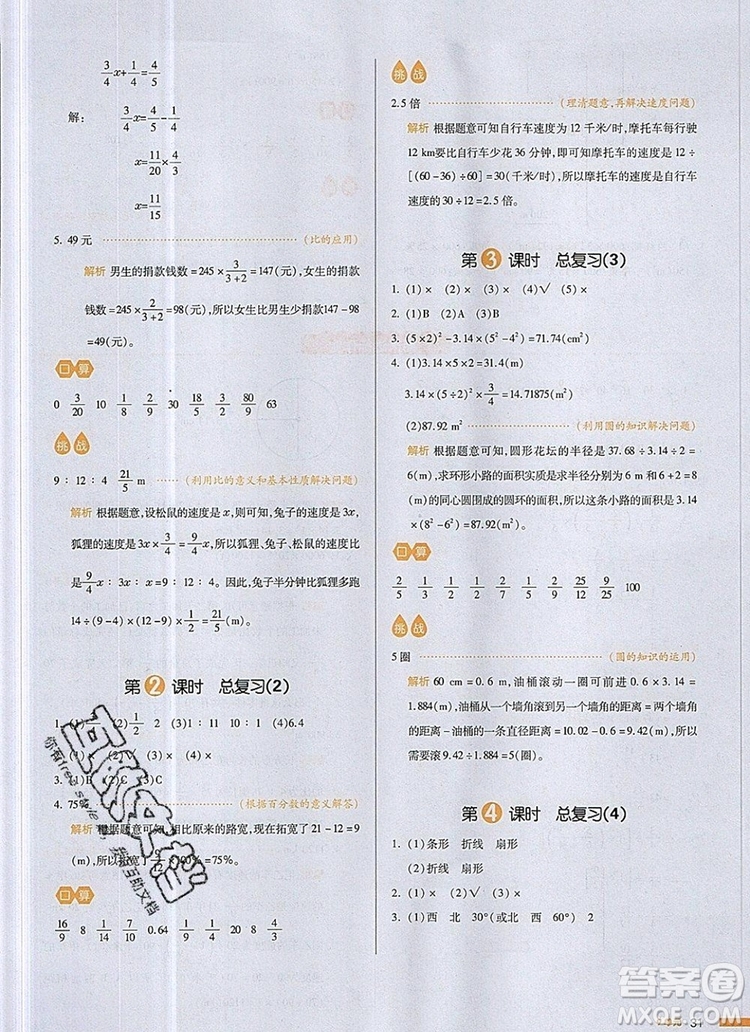 3/4x+1/4=4/5
解： 3/4x=4/5-1/4
x=11/20×4/3
x=11/15
5. 49元 (比的应用)
解析 男生的捐款钱数=245×3/(3+2)=147(元),女生的捐款
钱数=245×2/(3+2)=98(元),所以女生比男生少捐款147-98
=49(元)。
口算
0 3/20 10 1/8 2/9 30 18/5 3/2 80/9 63
挑战
9∶12∶4 21/5 m (利用比的意义和基本性质解决问题)
解析 根据题意,设松鼠的速度是x,则可知,兔子的速度是3x,
狐狸的速度是3x×3/4=9/4x,所以,狐狸、兔子、松鼠的速度比是
9/4x∶3x∶x=9∶12∶4。因此,兔子半分钟比狐狸多跑
14÷(9-4)×(12-9)×1/2=21/5(m)。
第2课时 总复习(2)
1. (1) (2)1/2 2 (3)1∶11 10∶1 (4)6.4
2. (1) (2)√ (3)× (4)×
3. (1)B (2)C (3)C
4. 75% (根据百分数的意义解答)
解析 根据题意可知,相比原来的路宽,现在拓宽了21-12=9
(m),所以拓宽了9/12×100%=75%。
口算
16/9 8 1/14 7/10 0.64 1/4 1/2 20 8 2/9
挑战
2.5倍 (理清题意,再解决速度问题)
解析 根据题意可知自行车速度为12千米/时,摩托车每行驶
12 km要比自行车少花36分钟,即可知,摩托车的速度是12÷
[(60-36)÷60]=30(千米/时),所以摩托车的速度是自行车
速度的30÷12=2.5倍。
第3课时 总复习(3)
1. (1)× (2)× (3)× (4)√ (5)×
2. (1)B (2)A (3)B
3. (5×2)²-3.14×(5²-4²)=71.74(cm²)
4. (1)3.14×5×2=31.4(m)
3.14×(5÷2)²×3/4=14.71875(m²)
(2)87.92 m² (利用圆的知识解决问题)
解析 根据题意可知,圆形花坛的半径是37.68÷3.14÷2=6
(m),求环形小路的面积实际是求半径分别是6 m和6+2=8(m)
的同心圆围成的圆环的面积,所以这条小路的面积是3.14
×(8²-6²)=87.92(m²)。
口算
2/5 1/5 1/3 4/9 9/16 16/25 25/36 9/25 100
挑战
5圈 (圆的知识的运用)
解析 60 cm=0.6 m,油桶滚动一圈可前进0.6×3.14=
1.884(m),油桶从一个墙角滚到另一个墙角的距离=两个墙角
的距离-油桶的直径距离=10.02-0.6=9.42(m),所以油桶
需要滚9.42÷1.884=5(圈)。
第4课时 总复习(4)
1. (1)条形 折线 扇形
(2)折线 条形 扇形
2. (1)× (2)√ (3)×
3. (1)西 北 30°(或北 西 60°) 2
31
互助文档
你有free style
我有互助文档
答案圈
MXQE.COM